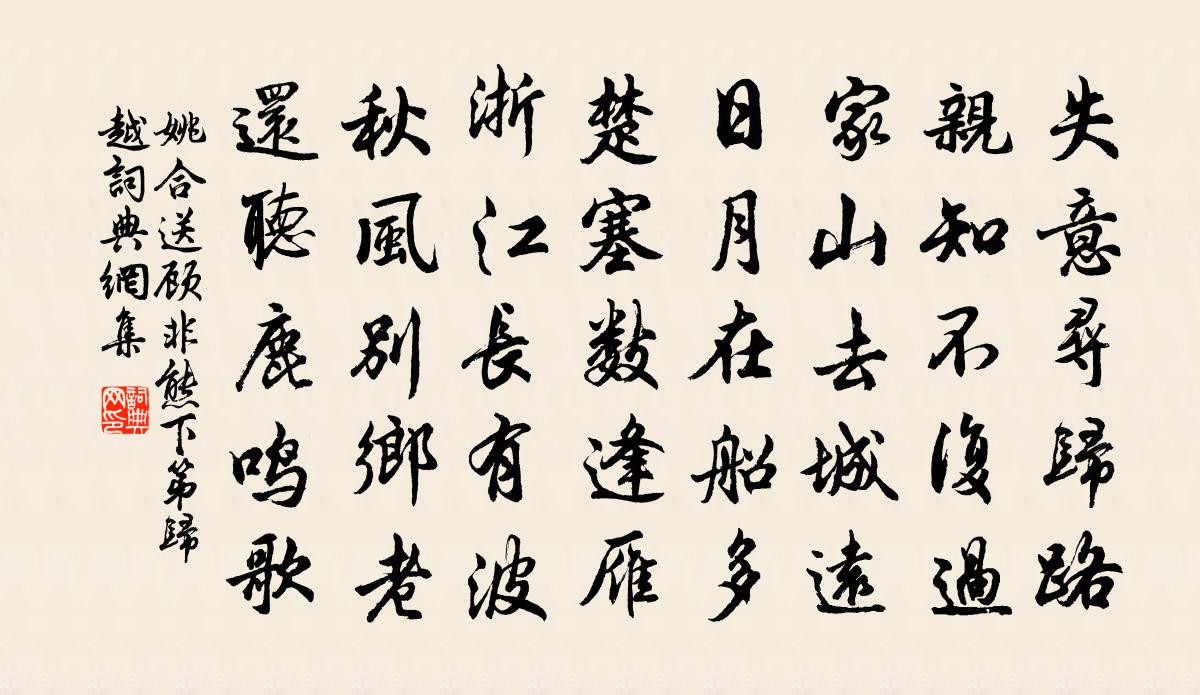 失意尋歸路
親知不復過
家山去城遠
日月在船多
楚塞數逢雁
浙江長有波
秋風別鄉老
還聽鹿鳴歌
姚合送顾非熊下第歸
越詞典網集
詞典
网印